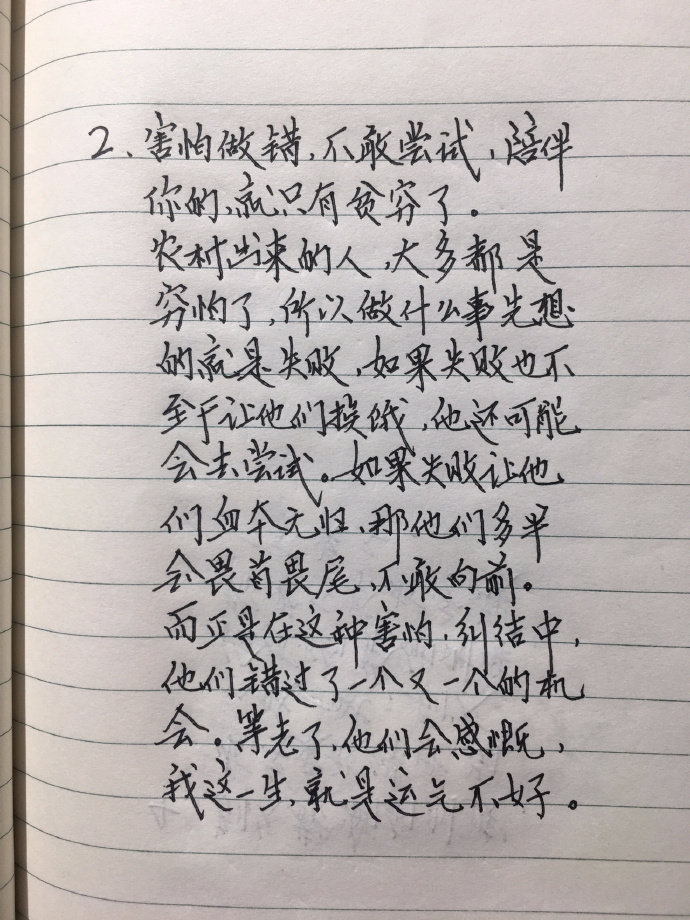 2、害怕做错,不敢尝试,陪伴
你的,就只有贫穷了。
农村出来的人,大多都是
穷怕了,所以做什么事先想
的就是失败,如果失败也不
至于让他们挨饿,他还可能
会去尝试。如果失败让他
们血本无归,那他们多半
会畏首畏尾,不敢向前。
而正是在这种害怕,纠结中,
他们错过了一个又一个的机
会。等老了,他们会感慨,
我这一生,就是运气不好。